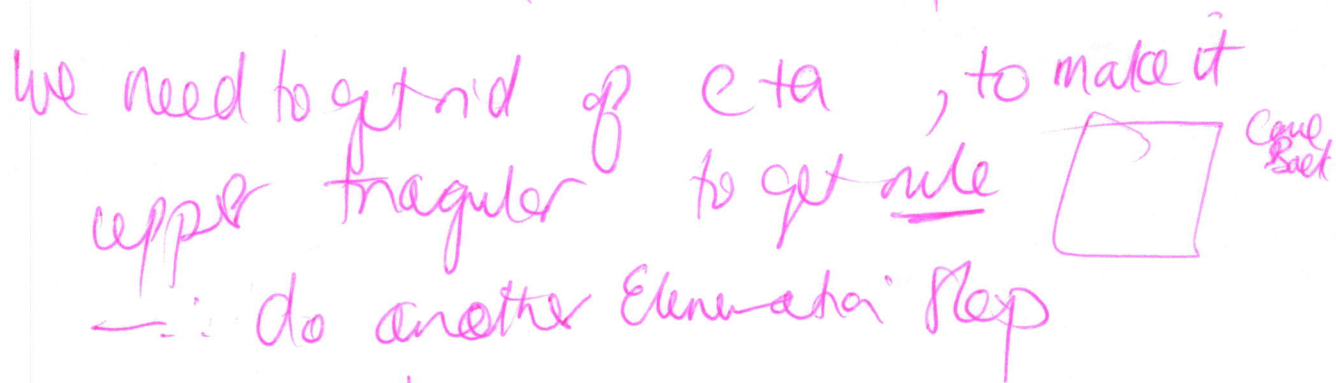 we need to get rid of c+a , to make it
upper triaguler to get rule
Come
Back
∴ do another Elemenation Step